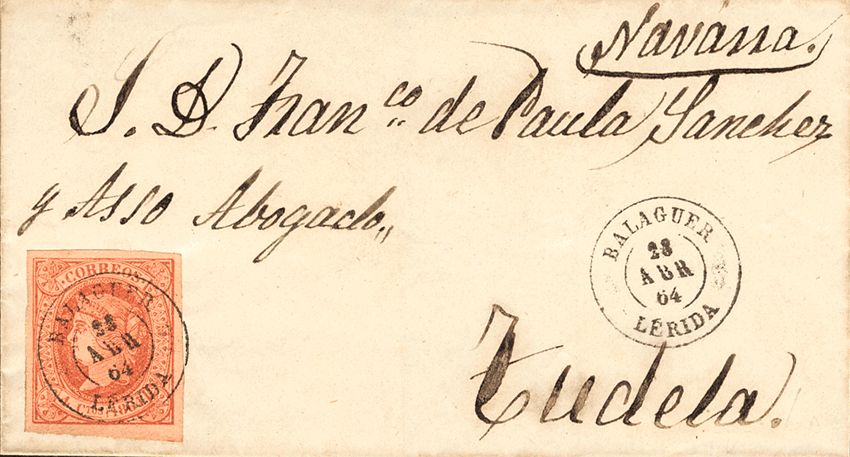 Navarra.
S. D. Franco de Paula Sanchez
y Asso Abogado
BALAGUER
28
ABR
64
LÉRIDA
Tudela.
CORREOS
BALAGUER
28
ABR
64
LÉRIDA